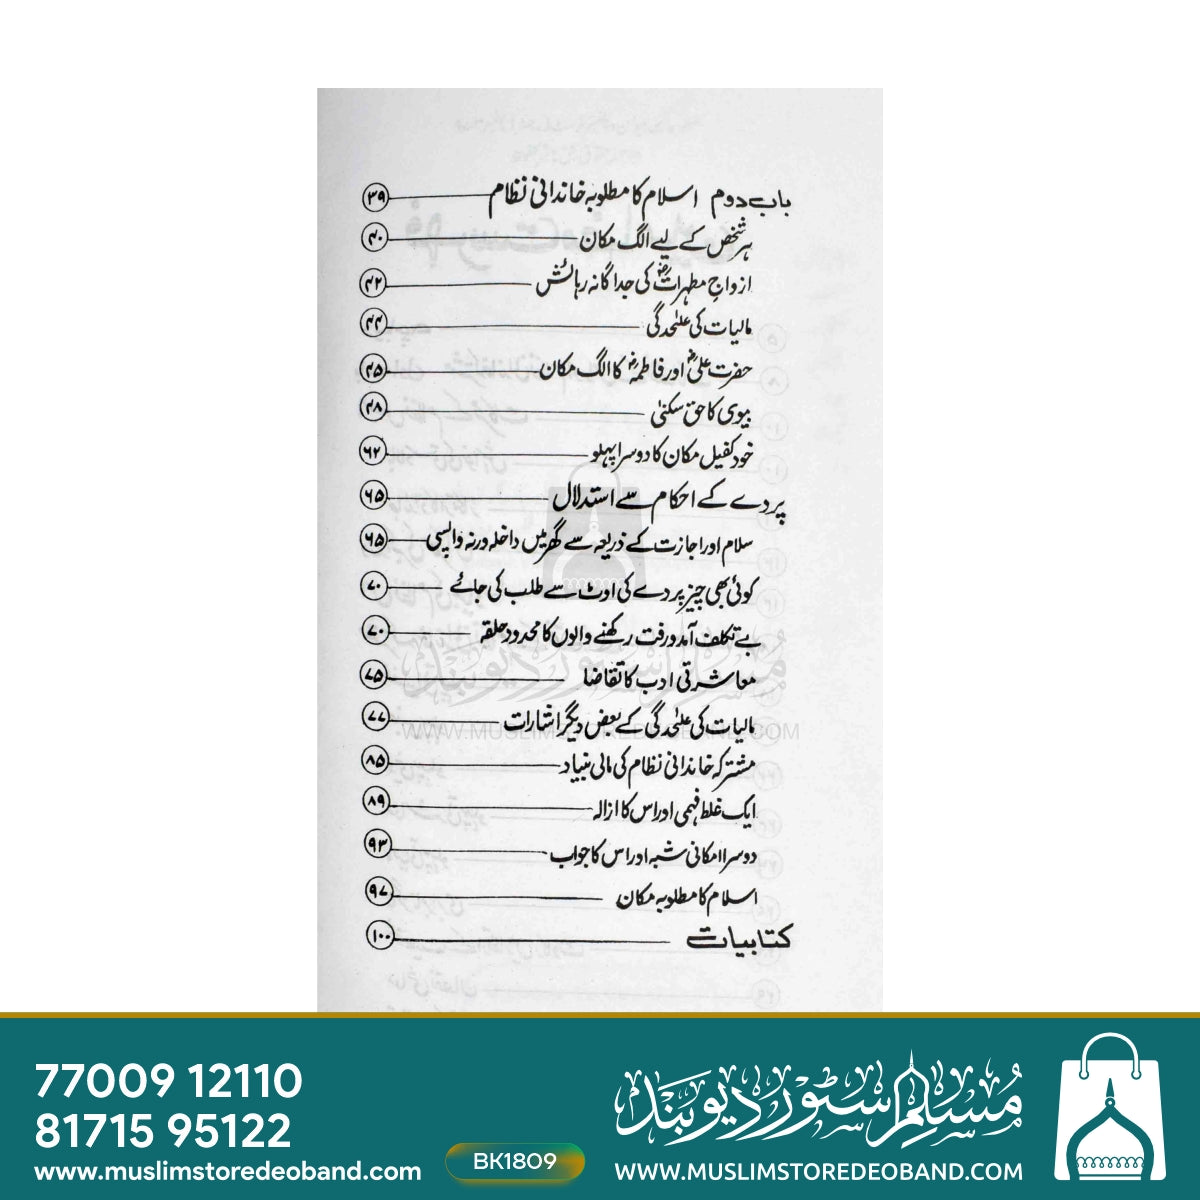 باب دوم اسلام کا مطلوبہ خاندانی نظام ۳۹
ہر شخص کے لیے الگ مکان ۴۰
ازواجِ مطہراتؓ کی جداگانہ رہائش ۴۲
مالیات کی علٰحدگی ۴۴
حضرت علیؓ اور فاطمہؓ کا الگ مکان ۴۵
بیوی کا حق سکنیٰ ۴۸
خود کفیل مکان کا دوسرا پہلو ۶۲
پردے کے احکام سے استدلال ۶۵
سلام اور اجازت کے ذریعہ سے گھر میں داخلہ ورنہ واپسی ۶۵
کوئی بھی چیز پردے کی اوٹ سے طلب کی جائے ۷۰
بے تکلف آمدورفت رکھنے والوں کا محدود حلقہ ۷۰
معاشرتی ادب کا تقاضا ۷۵
مالیات کی علٰحدگی کے بعض دیگر اشارات ۷۷
مشترکہ خاندانی نظام کی مالی بنیاد ۸۵
ایک غلط فہمی اور اس کا ازالہ ۸۹
دوسرا امکانی شبہ اور اس کا جواب ۹۳
اسلام کا مطلوبہ مکان ۹۷
کتابیات ۱۰۰
مسلم سٹور دیوبند
WWW.MUSLIMSTOREDEOBAND.COM
77009 12110
81715 95122
www.muslimstoredeoband.com
BK1809
مُسلِم سٹور دیوبند
WWW.MUSLIMSTOREDEOBAND.COM